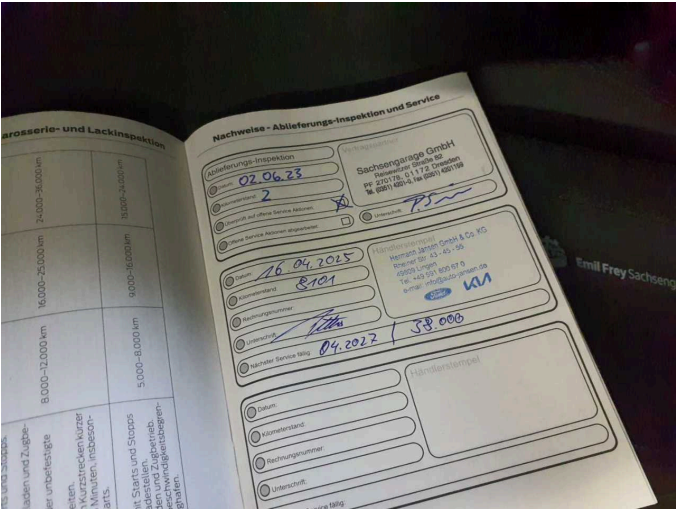 arosserie- und Lackinspektion
24.000–36.000 km
15.000–24.000 km
16.000–25.000 km
9.000–16.000 km
8.000–12.000 km
5.000–8.000 km
und Stopps
laden und Zugbe-
er unbefestigte
eiten.
Kurzstrecken kürzer
Minuten, insbeson-
arts.
it Starts und Stopps
adestellen.
den und Zugbetrieb.
eschwindigkeitsbegren-
ghafen.
Nachweise - Ablieferungs-Inspektion und Service
Ablieferungs-Inspektion
Datum: 02.06.23
Kilometerstand: 2
Überprüft auf offene Service Aktionen
Offene Service Aktionen abgearbeitet
Vertragspartner
Sachsengarage GmbH
Reisewitzer Straße 82
PF 270178, 01172 Dresden
Tel. (0351) 4201-0, Fax (0351) 4201199
Unterschrift:
Datum: 16.04.2025
Kilometerstand: 8101
Rechnungsnummer:
Unterschrift:
Nächster Service fällig: 04.2027 / 38.000
Händlerstempel
Hermann Jansen GmbH & Co. KG
Rheiner Str. 43 - 45 - 55
49809 Lingen
Tel. +49 591 800 67 0
e-mail: info@auto-jansen.de
Ford KIA
Datum:
Kilometerstand:
Rechnungsnummer:
Unterschrift:
Service fällig:
Händlerstempel
Emil Frey Sachseng